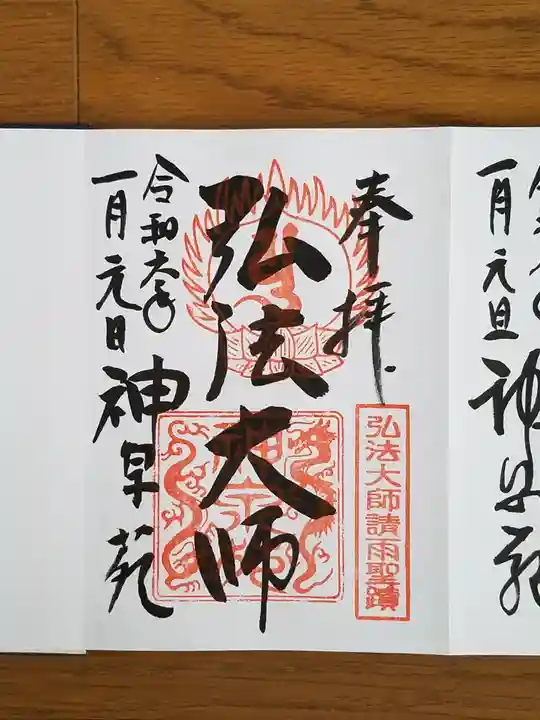 奉拝
弘法大師
弘法大師請雨聖蹟
神泉苑
令和六年
一月元日
神泉苑
一月元旦
神泉苑